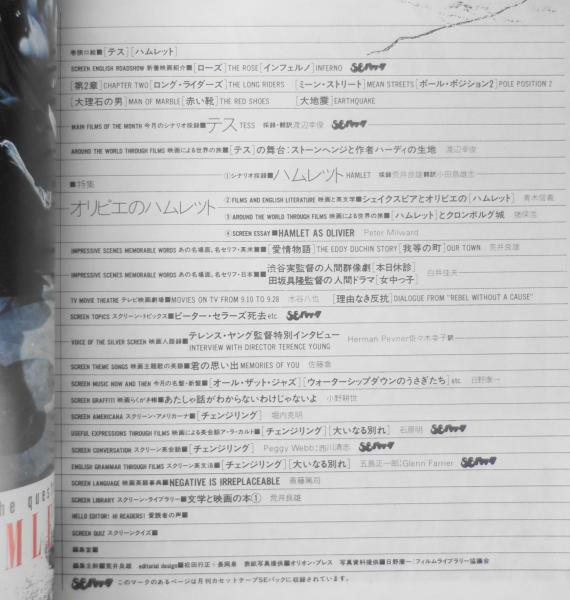 巻頭口絵■[テス][ハムレット]
SCREEN ENGLISH ROADSHOW 新着映画紹介■[ローズ]THE ROSE[インフェルノ]INFERNO SEパック
[第2章]CHAPTER TWO[ロング・ライダーズ]THE LONG RIDERS [ミーン・ストリート]MEAN STREETS[ポール・ポジション2]POLE POSITION 2
[大理石の男]MAN OF MARBLE[赤い靴]THE RED SHOES [大地震]EARTHQUAKE
MAIN FILMS OF THE MONTH 今月のシナリオ採録■テス TESS 採録・翻訳渡辺幸俊 SEパック
AROUND THE WORLD THROUGH FILMS 映画による世界の旅■[テス]の舞台:ストーンヘンジと作者ハーディの生地 渡辺幸俊
■特集
オリビエのハムレット
①シナリオ採録■ハムレット HAMLET 採録荒井良雄翻訳小田島雄志
②FILMS AND ENGLISH LITERATURE 映画と英文学■シェイクスピアとオリビエの[ハムレット] 青木信義
③AROUND THE WORLD THROUGH FILMS 映画による世界の旅■[ハムレット]とクロンボルグ城
④SCREEN ESSAY■HAMLET AS OLIVIER Peter Milward
IMPRESSIVE SCENES MEMORABLE WORDS あの名場面、名セリフ・英米篇■[愛情物語]THE EDDY DUCHIN STORY[我等の町]OUR TOWN 荒井良雄
IMPRESSIVE SCENES MEMORABLE WORDS あの名場面、名セリフ・日本篇■渋谷実監督の人間群像劇[本日休診]
田坂具隆監督の人間ドラマ[女中っ子] 白井佳夫
TV MOVIE THEATRE テレビ映画劇場■MOVIES ON TV FROM 9.10 TO 9.28 水谷八也 [理由なき反抗]DIALOGUE FROM "REBEL WITHOUT A CAUSE"
SCREEN TOPICS スクリーン・トピックス■ピーター・セラーズ死去etc. SEパック
VOICE OF THE SILVER SCREEN 映画人語録■テレンス・ヤング監督特別インタビュー
INTERVIEW WITH DIRECTOR TERENCE YOUNG Herman Pevner佐々木幸子訳
SCREEN THEME SONGS 映画主題歌の英語■君の思い出MEMORIES OF YOU
SCREEN MUSIC NOW AND THEN 今月の名盤・新盤■[オール・ザット・ジャズ][ウォーターシップダウンのうさぎたち]etc 日野康一
SCREEN GRAFFITI 映画らくがき帳■あたしゃ話がわからないわけじゃないよ 小野耕世
SCREEN AMERICANA スクリーン・アメリカーナ■[チェンジリング] 堀内克明
USEFUL EXPRESSIONS THROUGH FILMS 映画による英会話ア・ラ・カルト■[チェンジリング][大いなる別れ] SEパック
SCREEN CONVERSATION スクリーン英会話■[チェンジリング] Peggy Webb:西川満志 SEパック
ENGLISH GRAMMAR THROUGH FILMS スクリーン英文法■[チェンジリング][大いなる別れ] 五島正一郎:Glenn Farrier SEパック
SCREEN LANGUAGE 映画英語事典■NEGATIVE IS IRREPLACEABLE 斎藤篤司
SCREEN LIBRARY スクリーン・ライブラリー■文学と映画の本① 荒井良雄
HELLO EDITOR! HI READERS! 愛読者の声■
SCREEN QUIZ スクリーンクイズ■
編集室■
編集主幹■荒井良雄 editorial design■松田行正・長岡泉 表紙写真提供■オリオン・プレス 写真資料提供■日野康一:フィルムライブラリー協議会
SEパック このマークのあるページは月刊カセットテープSEパックに収録されています。
he quest
MLE